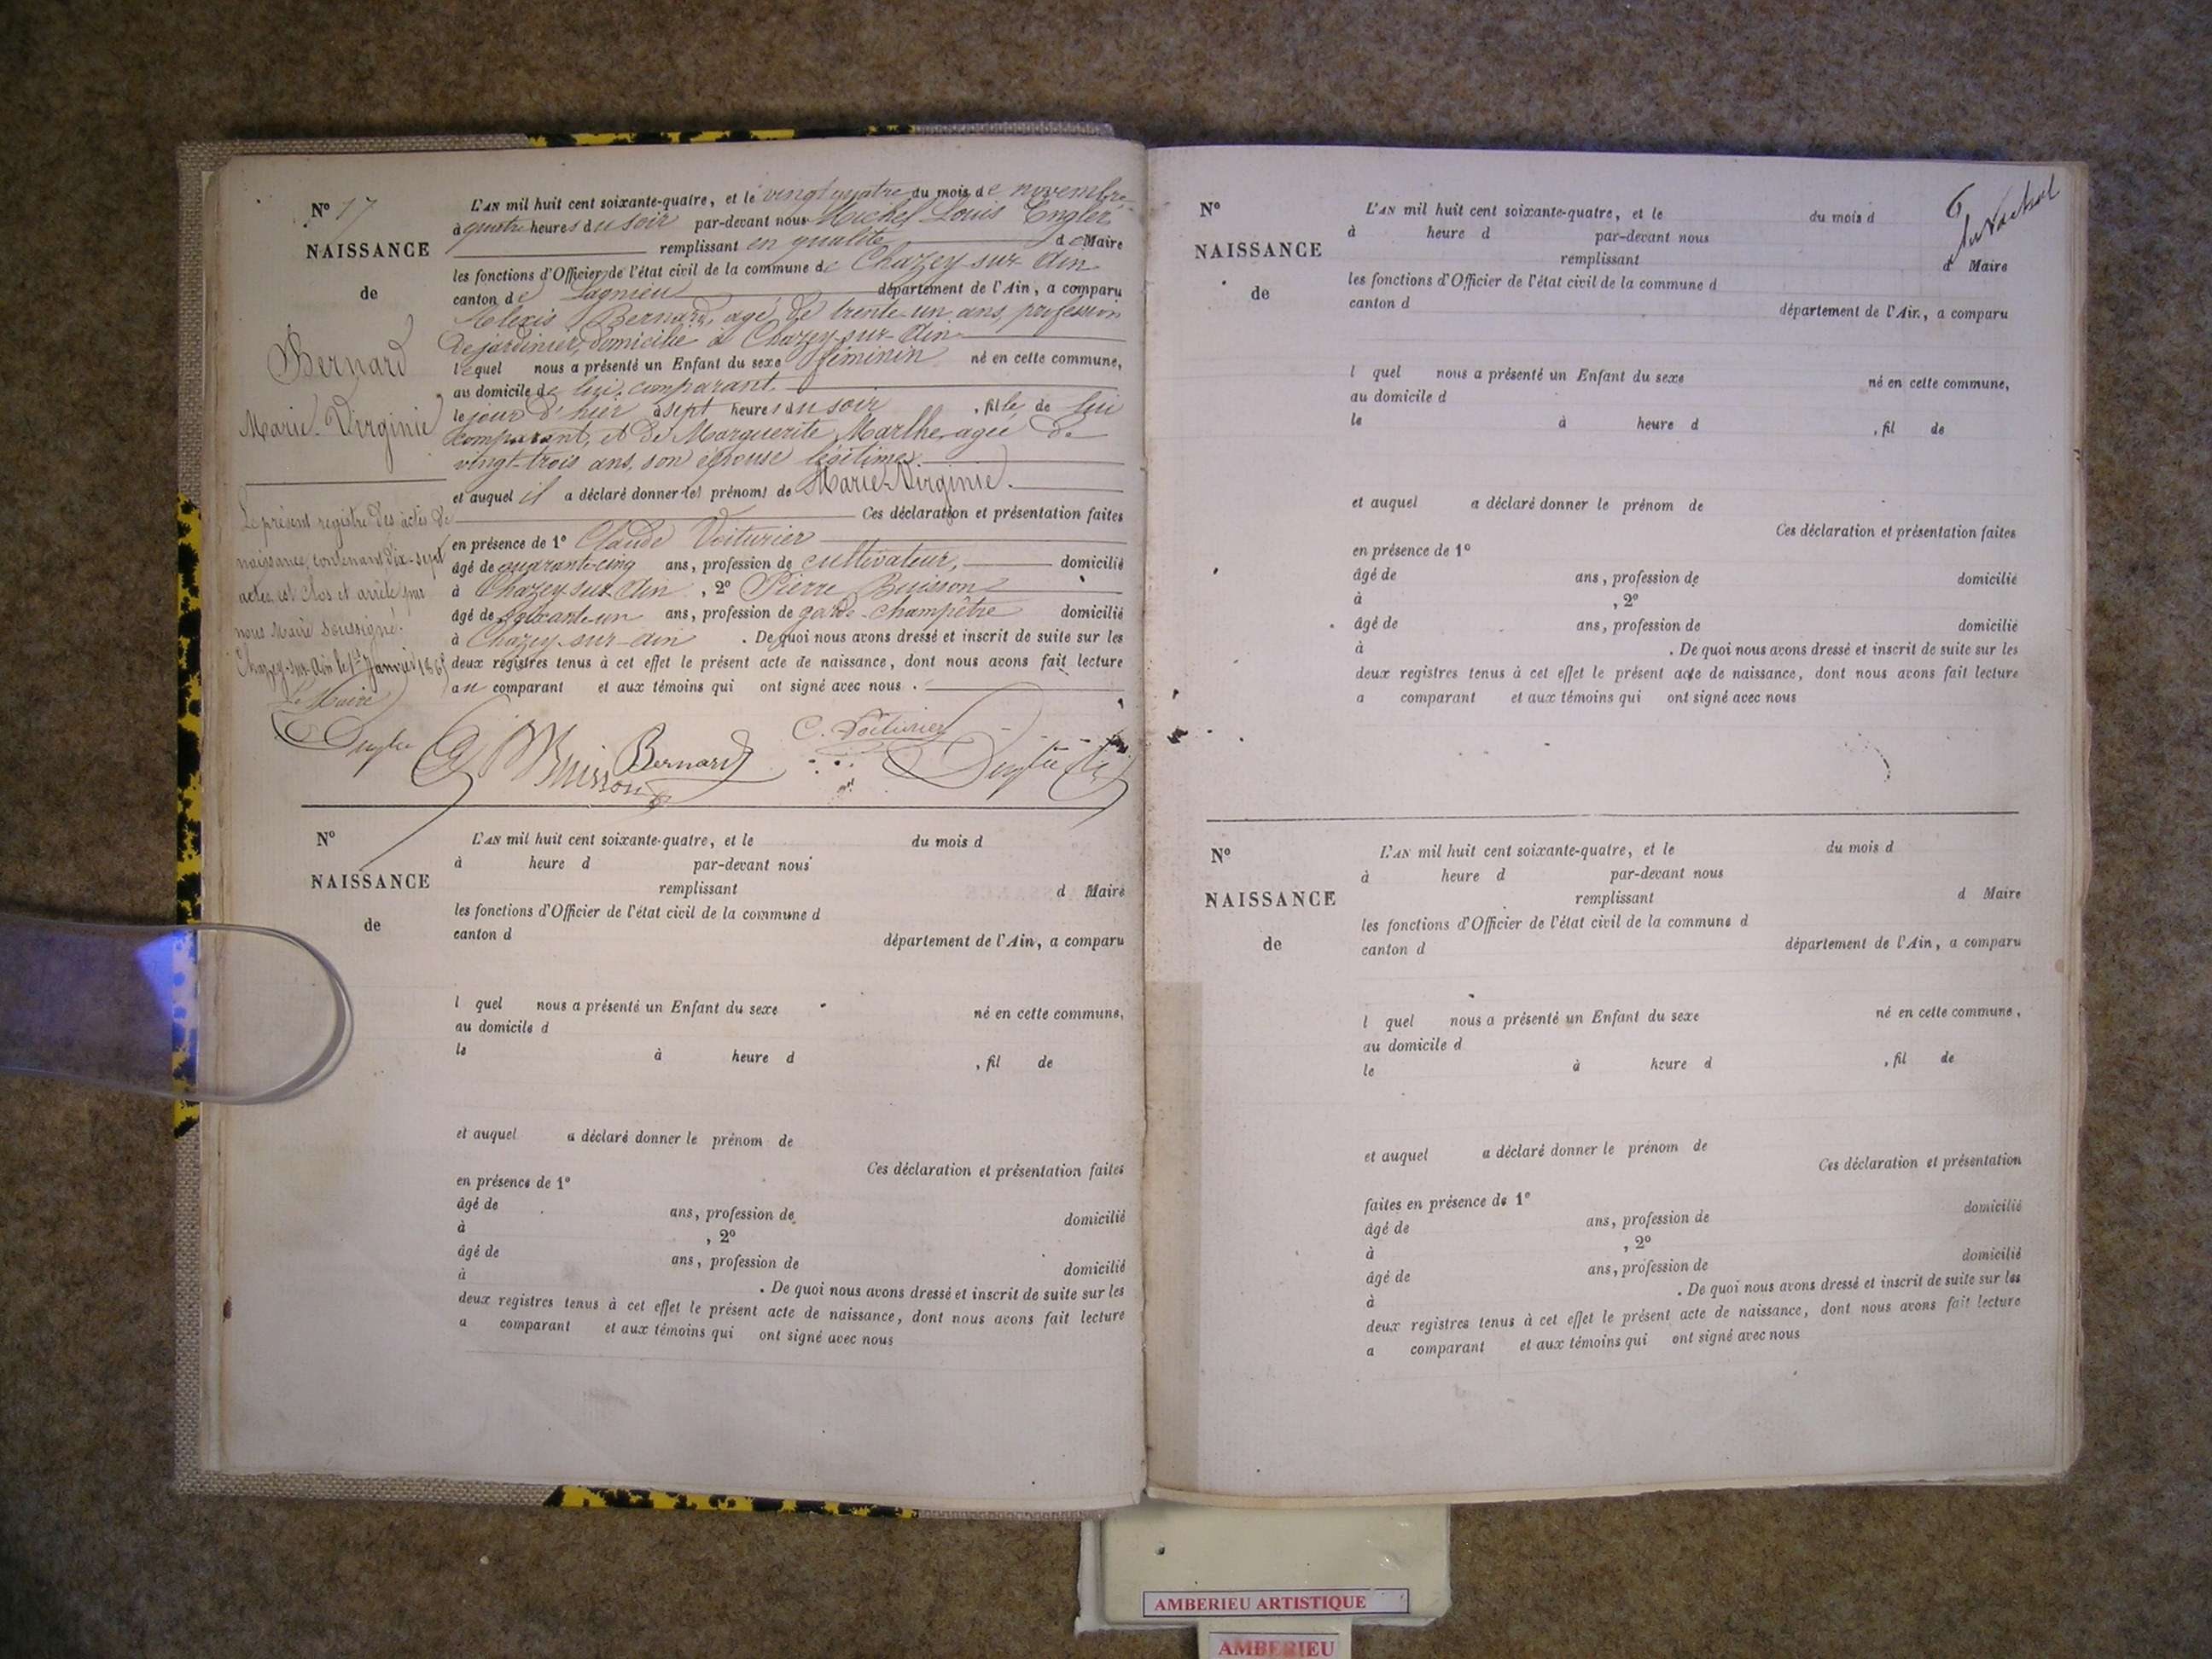 N° 17
NAISSANCE
de
Bernard
Marie-Virginie
Le présent registre des actes de
naissance, contenant dix-sept
actes, est clos et arrêté par
nous Maire soussigné.
Chazey-sur-Ain le 1er Janvier 1865
Le Maire
L'AN mil huit cent soixante-quatre, et le vingt quatre du mois de novembre
à quatre heures du soir par-devant nous Michel Louis Engler
remplissant en qualité de Maire
les fonctions d'Officier de l'état civil de la commune de Chazey-sur-Ain
canton de Lagnieu département de l'Ain, a comparu
Alexis Bernard, agé de trente-un ans, profession
de jardinier, domicilié à Chazey-sur-Ain
lequel nous a présenté un Enfant du sexe féminin né en cette commune,
au domicile de lui, comparant.
le jour d'hier à sept heures du soir, fille de lui
comparant, et de Marguerite Marthe, agée de
vingt-trois ans, son épouse légitime.
et auquel il a déclaré donner les prénoms de Marie-Virginie.
Ces déclaration et présentation faites
en présence de 1° Claude Voiturier
âgé de quarante-cinq ans, profession de cultivateur, domicilié
à Chazey-sur-Ain, 2° Pierre Buisson
âgé de soixante-un ans, profession de garde-champêtre domicilié
à Chazey-sur-Ain. De quoi nous avons dressé et inscrit de suite sur les
deux registres tenus à cet effet le présent acte de naissance, dont nous avons fait lecture
au comparant et aux témoins qui ont signé avec nous.
Engler Buisson Bernard C. Voiturier Engler
N°
NAISSANCE
de
L'AN mil huit cent soixante-quatre, et le du mois d
à heure d par-devant nous
remplissant d Maire
les fonctions d'Officier de l'état civil de la commune d
canton d département de l'Ain, a comparu
l quel nous a présenté un Enfant du sexe né en cette commune,
au domicile d
le à heure d , fil de
et auquel a déclaré donner le prénom de
Ces déclaration et présentation faites
en présence de 1°
âgé de ans, profession de domicilié
à , 2°
âgé de ans, profession de domicilié
à . De quoi nous avons dressé et inscrit de suite sur les
deux registres tenus à cet effet le présent acte de naissance, dont nous avons fait lecture
a comparant et aux témoins qui ont signé avec nous
6
N°
NAISSANCE
de
L'AN mil huit cent soixante-quatre, et le du mois d
à heure d par-devant nous
remplissant d Maire
les fonctions d'Officier de l'état civil de la commune d
canton d département de l'Ain, a comparu
l quel nous a présenté un Enfant du sexe né en cette commune,
au domicile d
le à heure d , fil de
et auquel a déclaré donner le prénom de
Ces déclaration et présentation faites
en présence de 1°
âgé de ans, profession de domicilié
à , 2°
âgé de ans, profession de domicilié
à . De quoi nous avons dressé et inscrit de suite sur les
deux registres tenus à cet effet le présent acte de naissance, dont nous avons fait lecture
a comparant et aux témoins qui ont signé avec nous
N°
NAISSANCE
de
L'AN mil huit cent soixante-quatre, et le du mois d
à heure d par-devant nous
remplissant d Maire
les fonctions d'Officier de l'état civil de la commune d
canton d département de l'Ain, a comparu
l quel nous a présenté un Enfant du sexe né en cette commune,
au domicile d
le à heure d , fil de
et auquel a déclaré donner le prénom de
Ces déclaration et présentation
faites en présence de 1°
âgé de ans, profession de domicilié
à , 2°
âgé de ans, profession de domicilié
à . De quoi nous avons dressé et inscrit de suite sur les
deux registres tenus à cet effet le présent acte de naissance, dont nous avons fait lecture
a comparant et aux témoins qui ont signé avec nous
AMBERIEU ARTISTIQUE
AMBERIEU